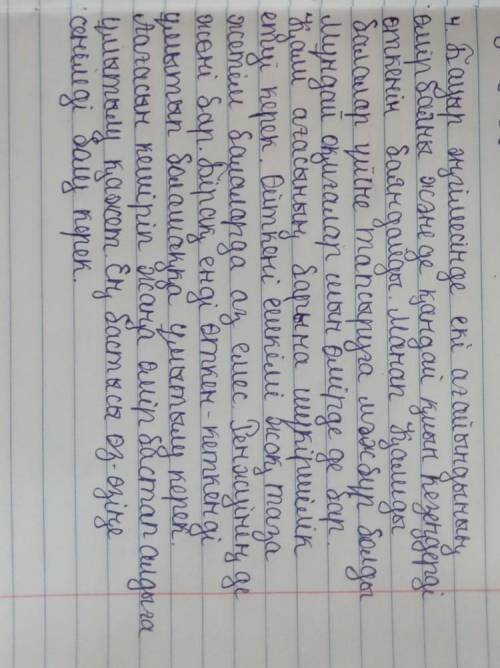 4 Бауыр әңгімесінде екі ағайындының
өмірбаяны және де қандай қиын кезеңдерді
өткенін баяндалды. Манап Қалиды
балалар үйіне тапсыруға мәжбүр болды
Мұндай оқиғалар шын өмірде де бар.
Қали ағасының барына шүкіршілік
етуі керек. Өйткені ешкімі жоқ таза
жетім балаларда аз емес. Ренжуінің де
жөні бар. Бірақ енді өткен-кеткенді
ұмытып болашаққа ұмытылу керек.
Ағасын кешіріп жаңа өмір бастап алдыға
ұмытылу қажет. Ең бастысы өз-өзіңе
сенімді болу керек.